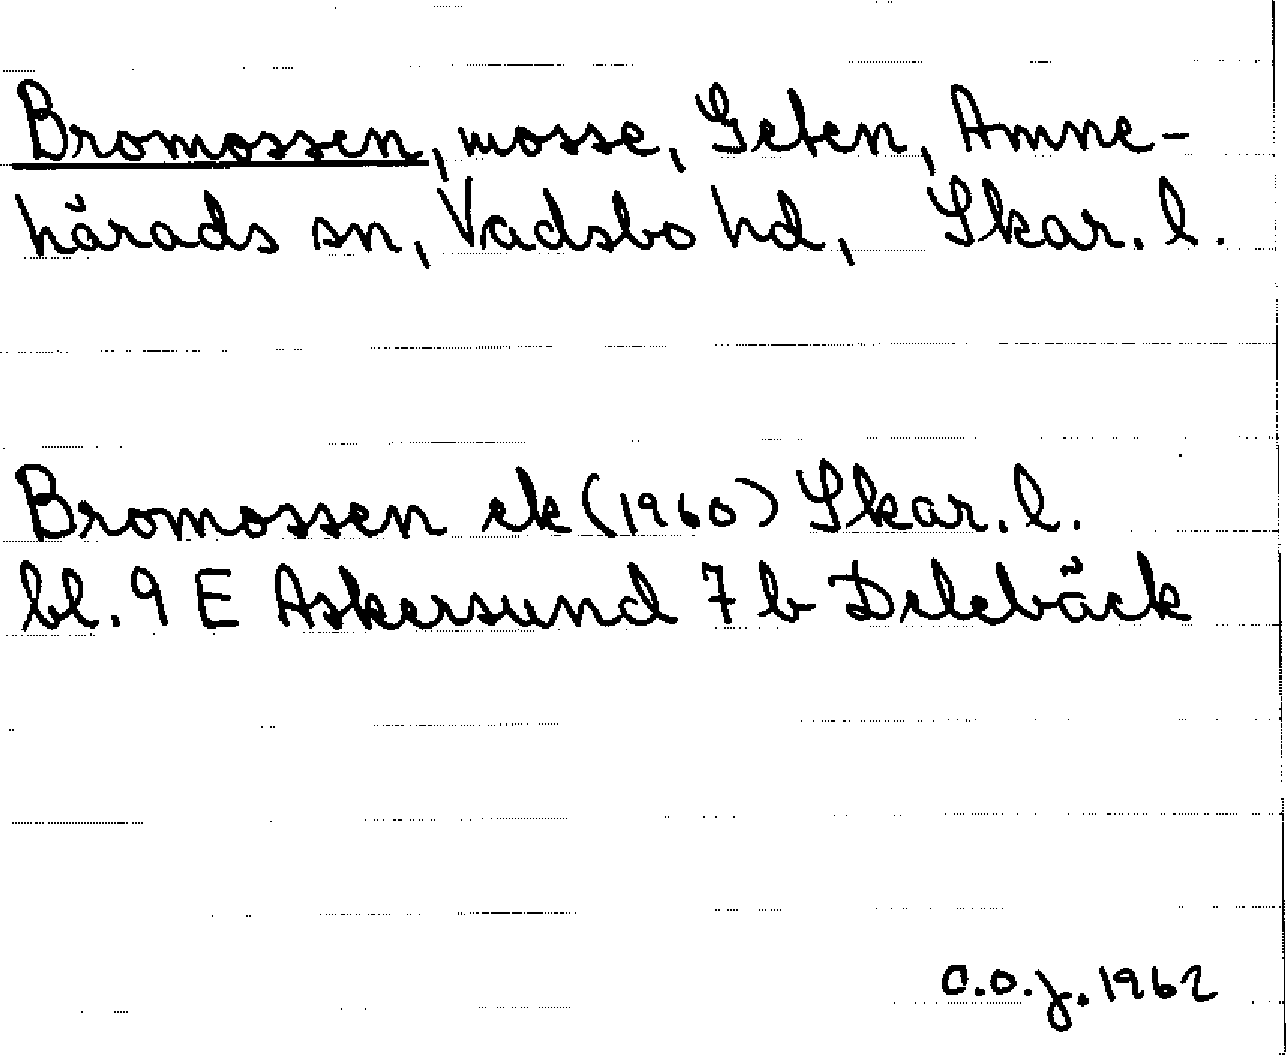 Bromossen, mosse, Geten, Amne-
härads sn, Vadsbo hd, Skar. l.
Bromossen ek (1960) Skar. l.
bl. 9 E Askersund 7 b Delebäck
C.O.J. 1962